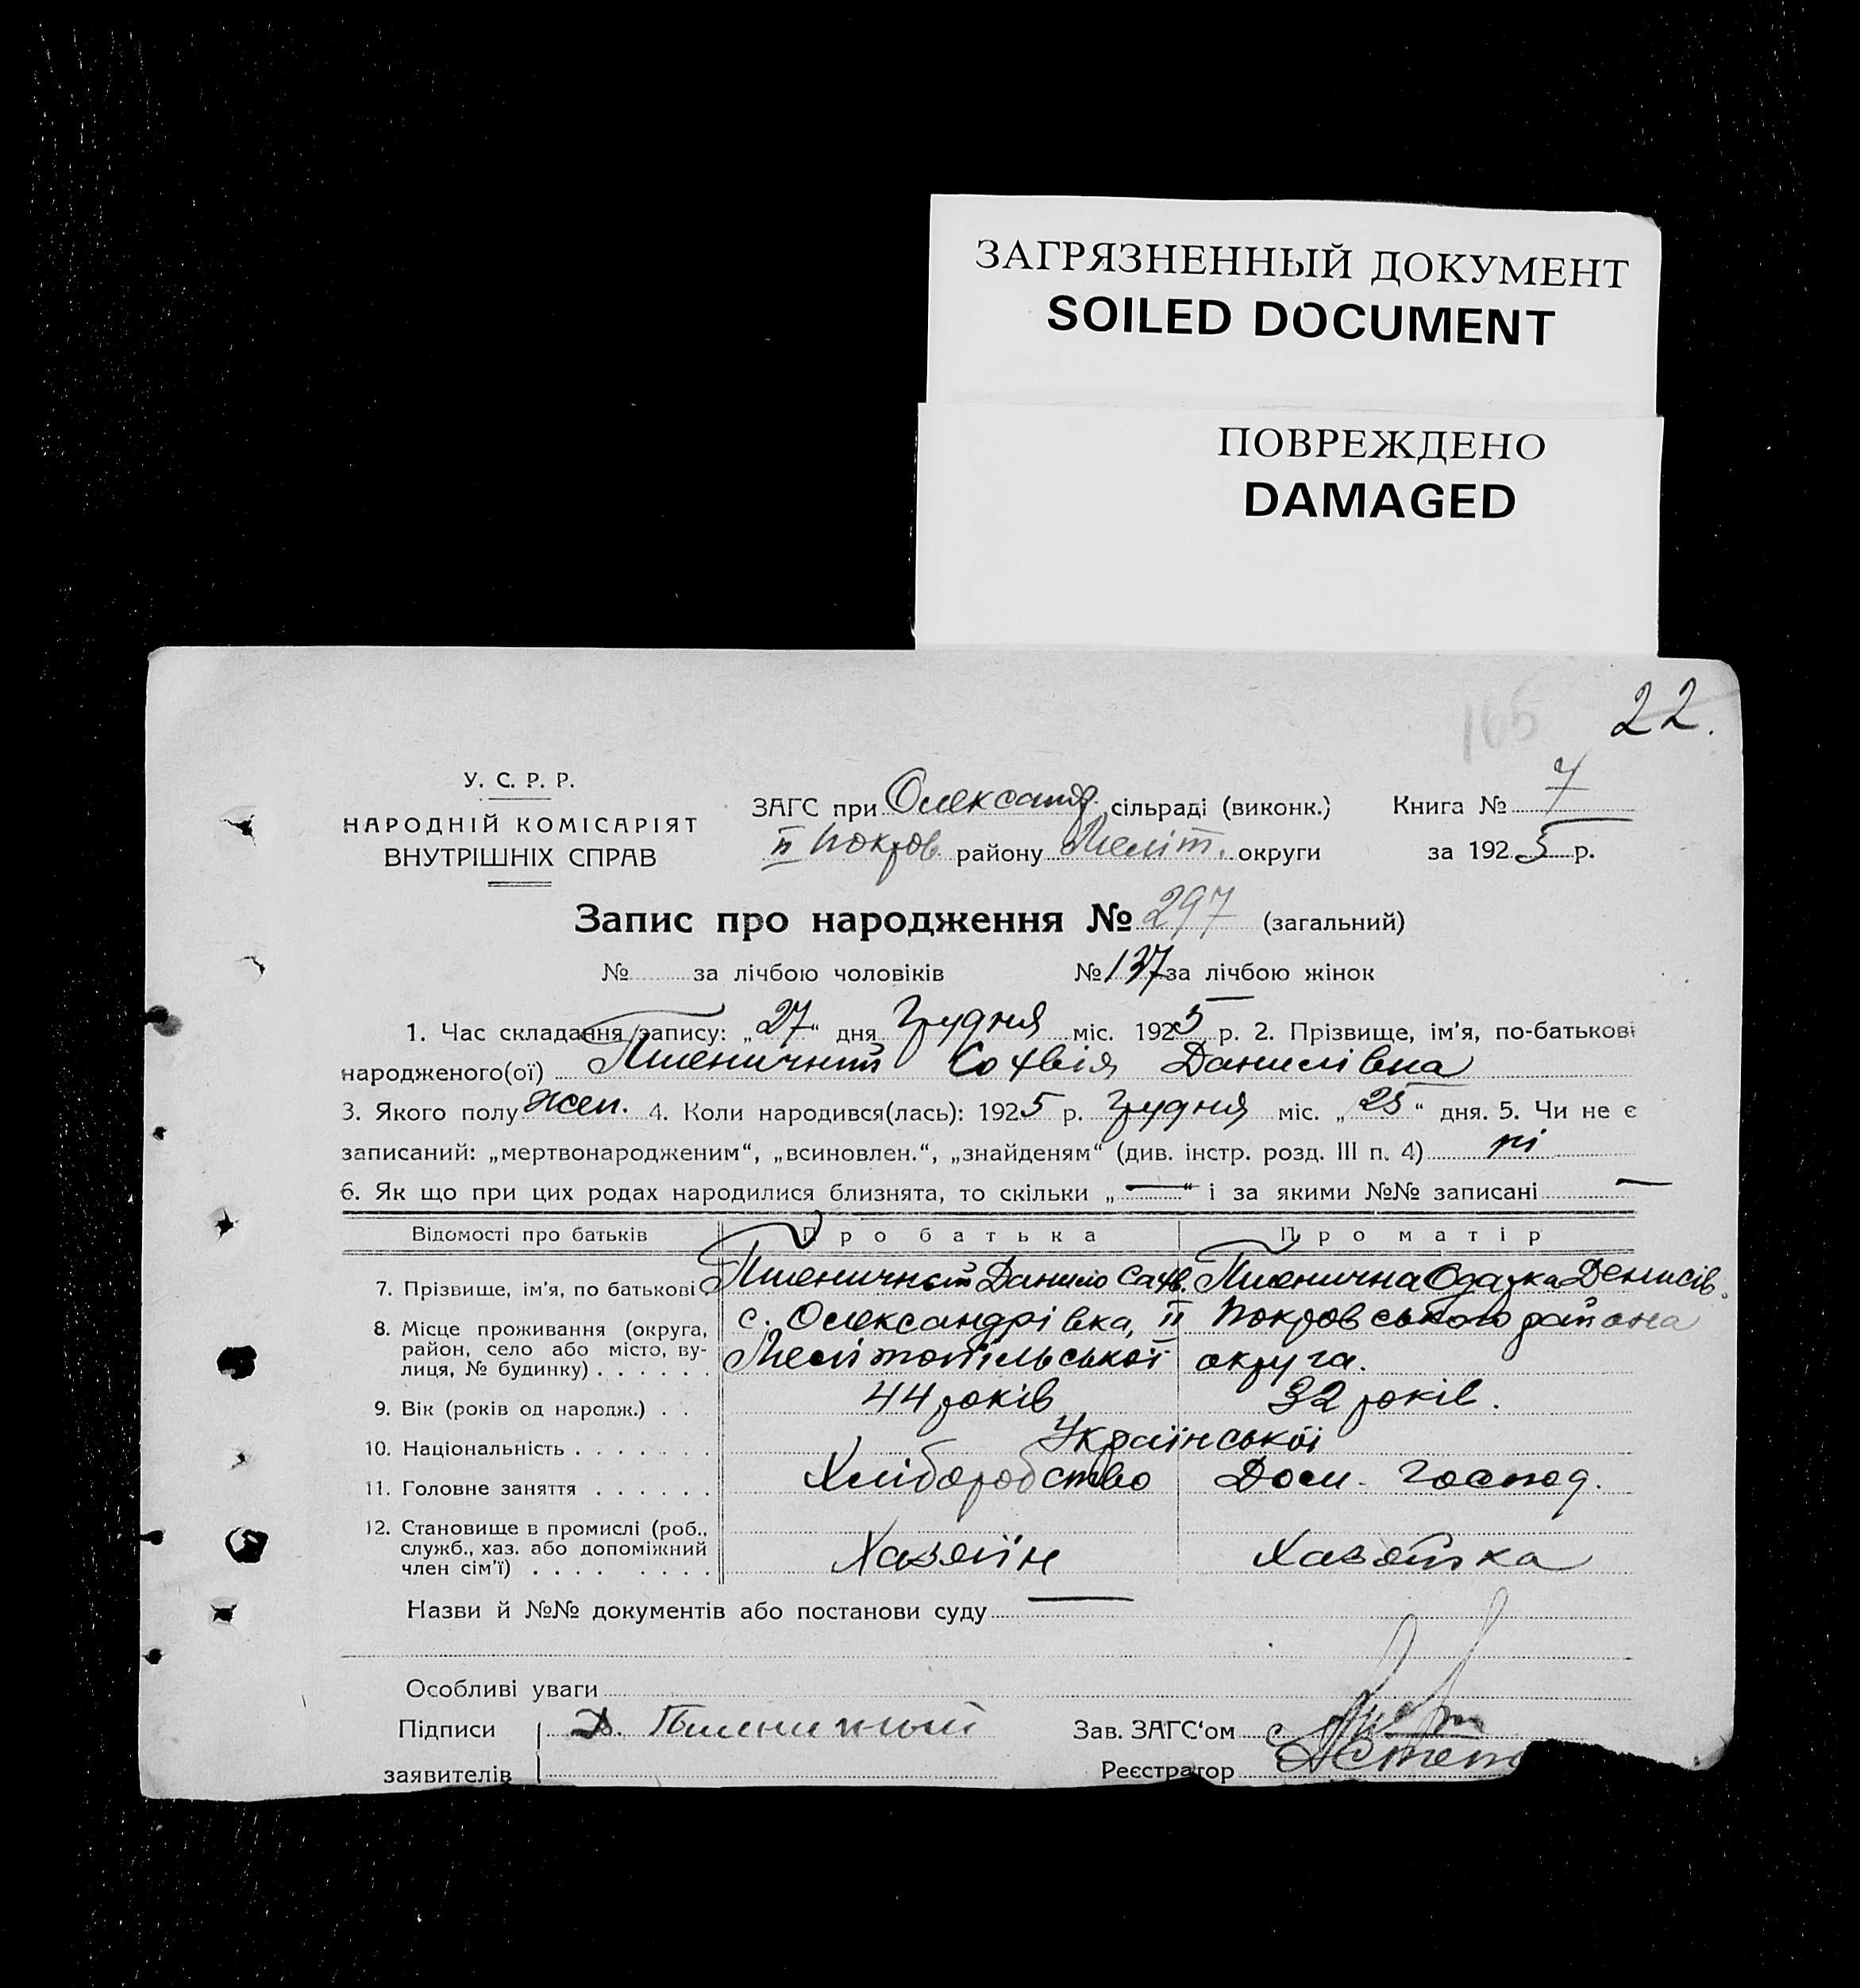 ЗАГРЯЗНЕННЫЙ ДОКУМЕНТ
SOILED DOCUMENT
ПОВРЕЖДЕНО
DAMAGED
165 22.
У. С. Р. Р.
НАРОДНІЙ КОМІСАРІЯТ
ВНУТРІШНІХ СПРАВ
ЗАГС при Олександр. сільраді (виконк.) Книга № 7
II Покров. району Меліт. округи за 1925 р.
Запис про народження № 297 (загальний)
№ за лічбою чоловіків № 137 за лічбою жінок
1. Час складання запису: „27“ дня Грудня міс. 1925 р. 2. Прізвище, ім'я, по-батькові
народженого(ої) Пшеничний Софвія Данилівна
3. Якого полу жен. 4. Коли народився(лась): 1925 р. Грудня міс. „25“ дня. 5. Чи не є
записаний: „мертвонародженим“, „всиновлен.“, „знайденям“ (див. інстр. розд. III п. 4) ні
6. Як що при цих родах народилися близнята, то скільки „—“ і за якими №№ записані —
Відомості про батьків Про батька Про матір
7. Прізвище, ім'я, по батькові Пшеничний Данило Пшенична Одарка Денисів.
8. Місце проживання (округа, район, село або місто, вулиця, № будинку) с. Олександрівка, II Покровського района
Мелітопільської округа.
9. Вік (років од народж.) 44 років 32 років.
10. Національність Української
11. Головне заняття Хліборобство Дом. господ.
12. Становище в промислі (роб., служб., хаз. або допоміжний член сім'ї) Хазяїн Хазяйка
Назви й №№ документів або постанови суду —
Особливі уваги
Підписи Д. Пшеничный Зав. ЗАГС'ом
заявителів Реєстратор